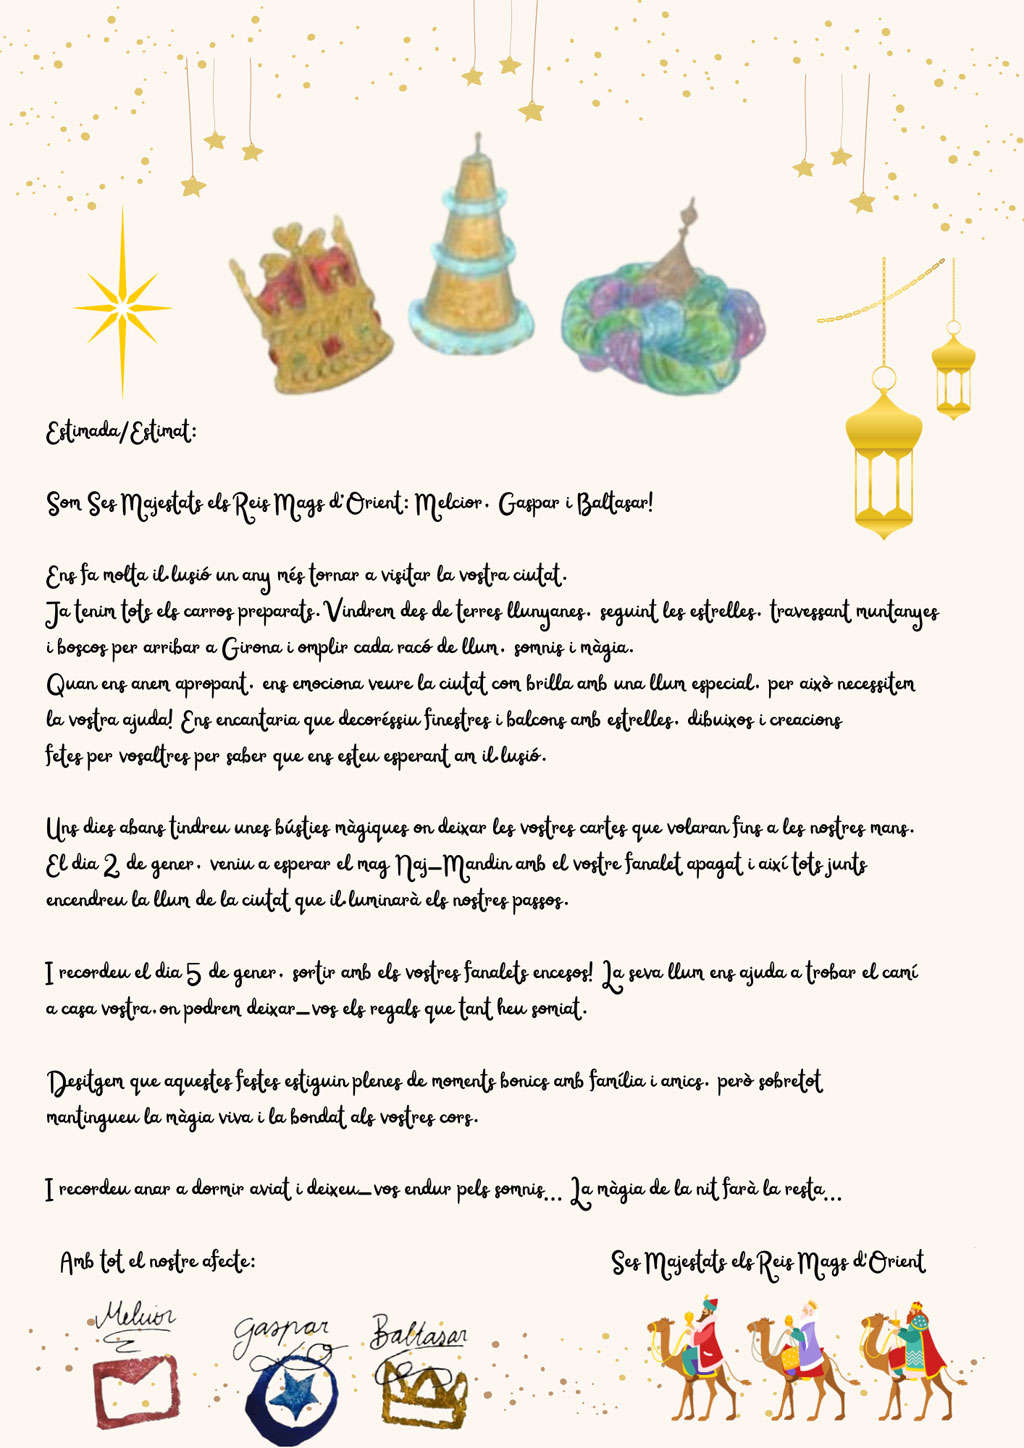 Estimada/Estimat:
Som Ses Majestats els Reis Mags d'Orient: Melcior, Gaspar i Baltasar!
Ens fa molta il·lusió un any més tornar a visitar la vostra ciutat.
Ja tenim tots els carros preparats. Vindrem des de terres llunyanes, seguint les estrelles, travessant muntanyes
i boscos per arribar a Girona i omplir cada racó de llum, somnis i màgia.
Quan ens anem apropant, ens emociona veure la ciutat com brilla amb una llum especial, per això necessitem
la vostra ajuda! Ens encantaria que decoréssiu finestres i balcons amb estrelles, dibuixos i creacions
fetes per vosaltres per saber que ens esteu esperant am il·lusió.
Uns dies abans tindreu unes bústies màgiques on deixar les vostres cartes que volaran fins a les nostres mans.
El dia 2 de gener, veniu a esperar el mag Naj-Mandin amb el vostre fanalet apagat i així tots junts
encendreu la llum de la ciutat que il·luminarà els nostres passos.
I recordeu el dia 5 de gener, sortir amb els vostres fanalets encesos! La seva llum ens ajuda a trobar el camí
a casa vostra,on podrem deixar-vos els regals que tant heu somiat.
Desitgem que aquestes festes estiguin plenes de moments bonics amb família i amics, però sobretot
mantingueu la màgia viva i la bondat als vostres cors.
I recordeu anar a dormir aviat i deixeu-vos endur pels somnis... La màgia de la nit farà la resta...
Amb tot el nostre afecte:
Ses Majestats els Reis Mags d'Orient
Melcior
Gaspar
Baltasar